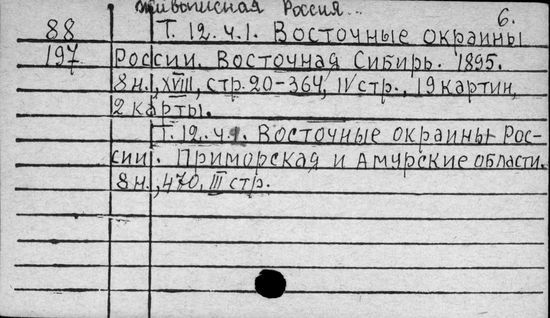 Живописная Россия... 6.
88 Т. 12. ч. 1. Восточные окраины
197 России. Восточная Сибирь. 1895.
8 н., XVIII, стр. 20-364, IV стр., 19 картин,
2 карты.
Т. 12. ч. 2. Восточные окраины Рос-
сии. Приморская и Амурские области.
8 н., 470, III стр.